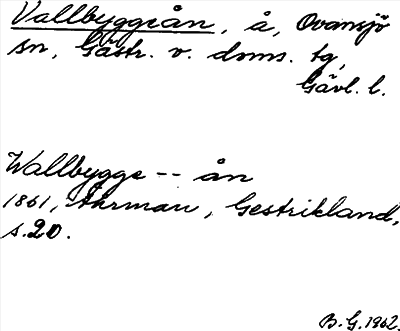 Vallbyggeån, å, Ovansjö
sn, Gästr. v. doms. tg,
Gävl. l.
Wallbygge -- ån
1861, Arman, Gestrikland,
s. 20.
B.G. 1962.